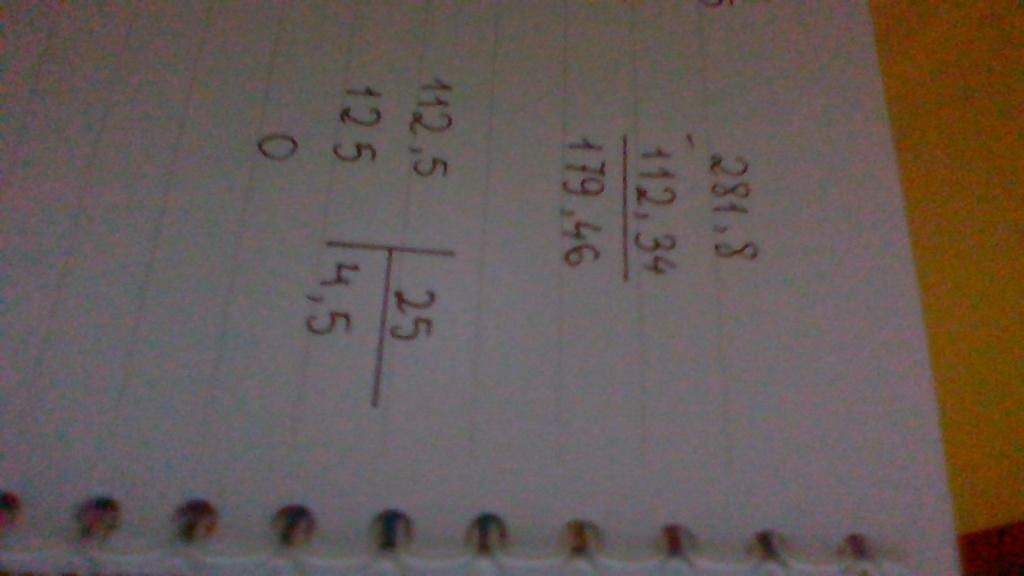 281,8
- 112,34
179,46
112,5 | 25
125 4,5
0